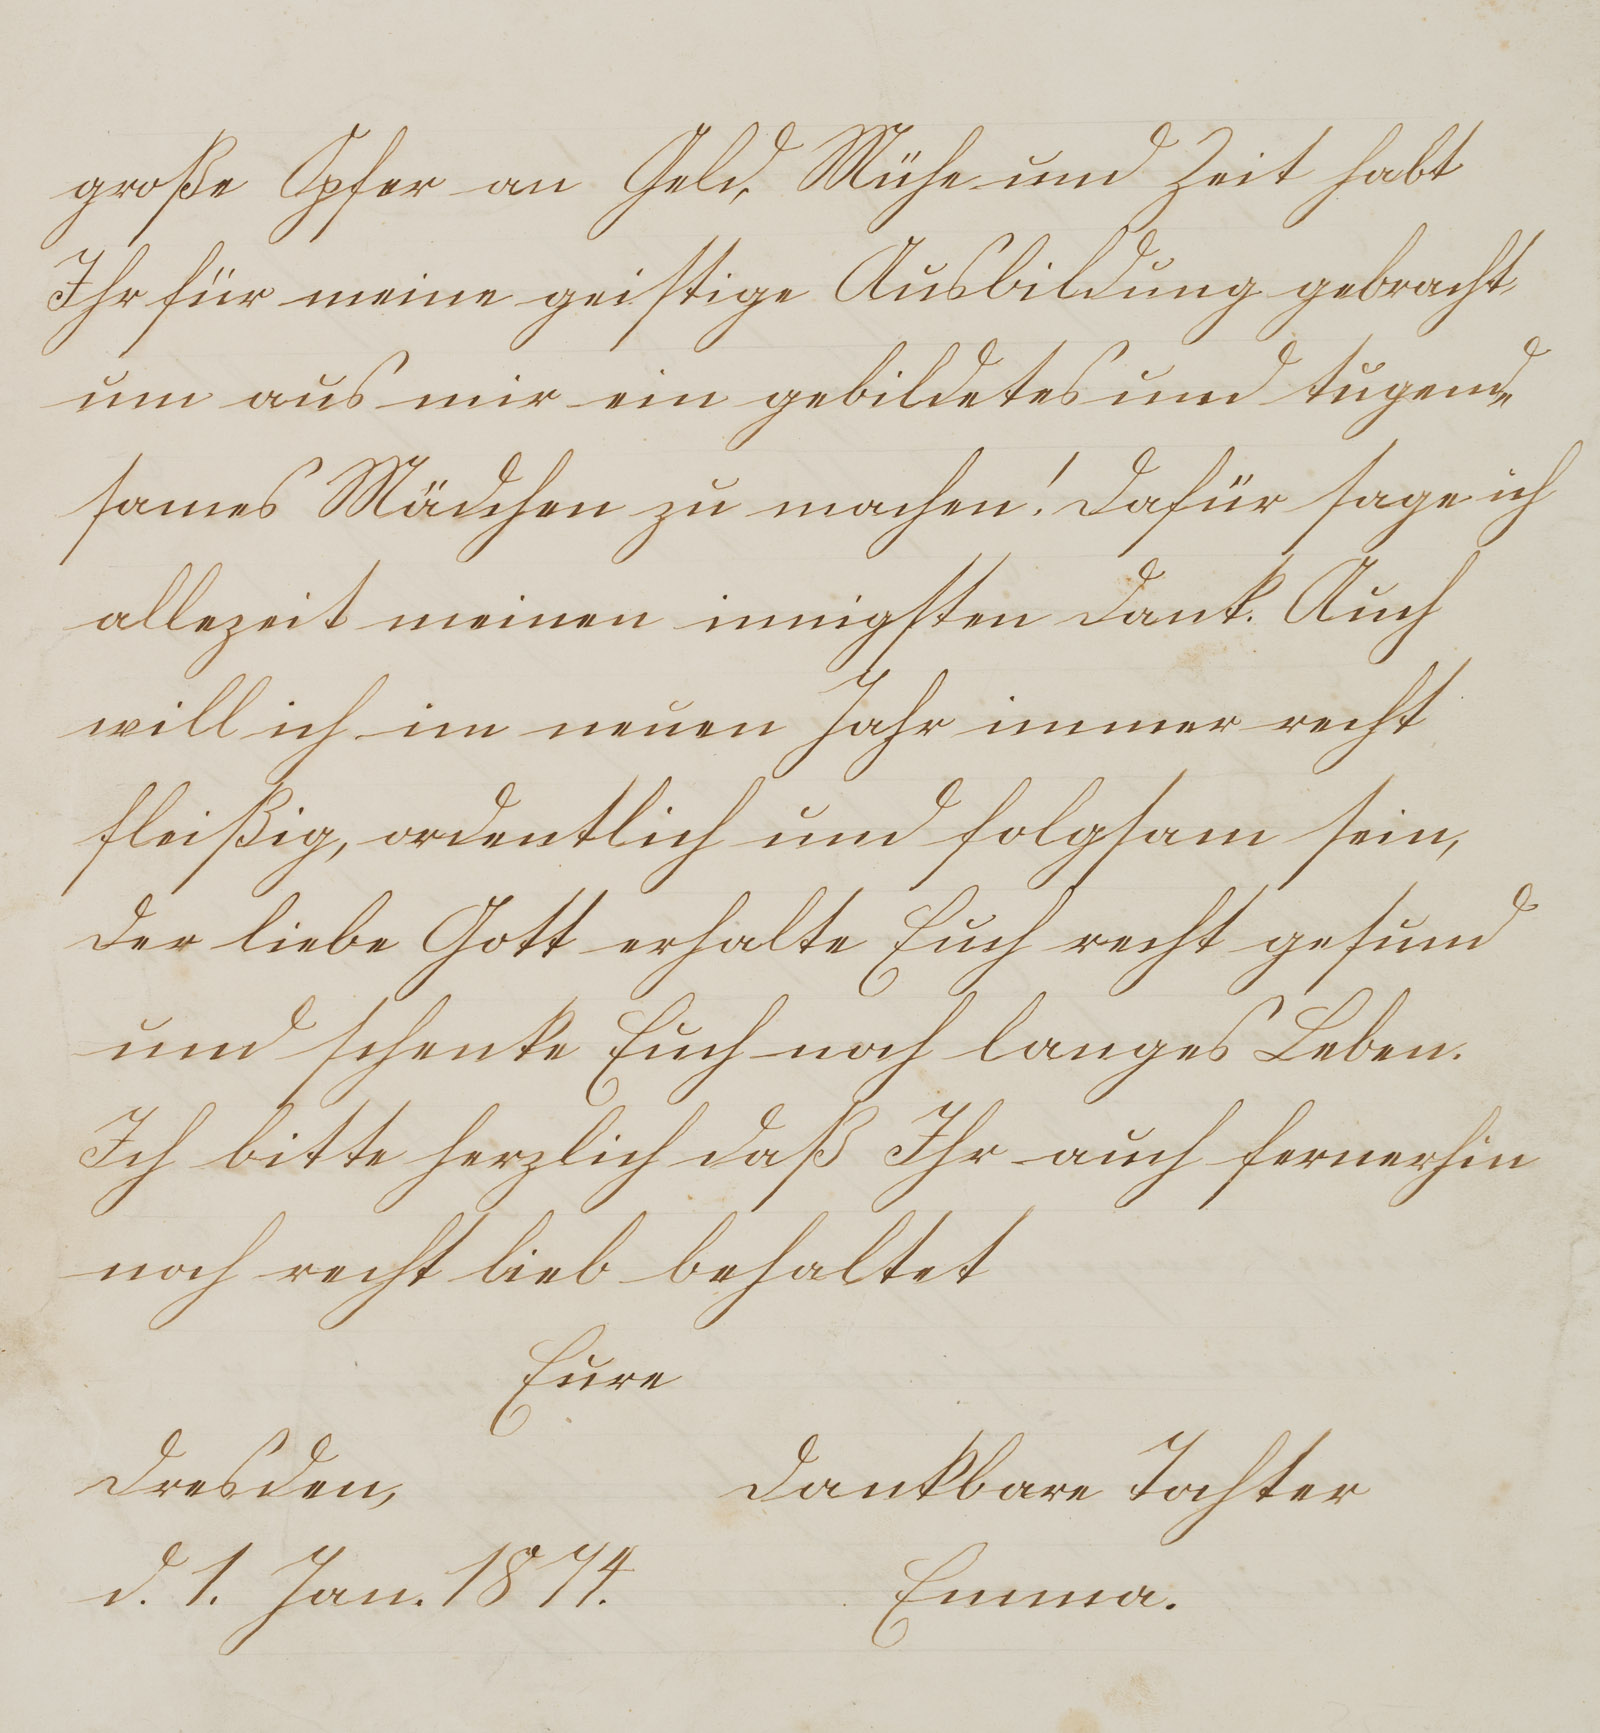 große Opfer an Geld, Mühe und Zeit habt
Ihr für meine geistige Ausbildung gebracht,
um aus mir ein gebildetes und tugend„
sames Mädchen zu machen! Dafür sage ich
allezeit meinen innigsten Dank. Auch
will ich im neuen Jahr immer recht
fleißig, ordentlich und folgsam sein,
der liebe Gott erhalte Euch recht gesund
und schenke Euch noch langes Leben.
Ich bitte herzlich daß Ihr auch fernerhin
noch recht lieb behaltet
Eure
Dresden, dankbare Tochter
d. 1. Jan. 1874. Emma.